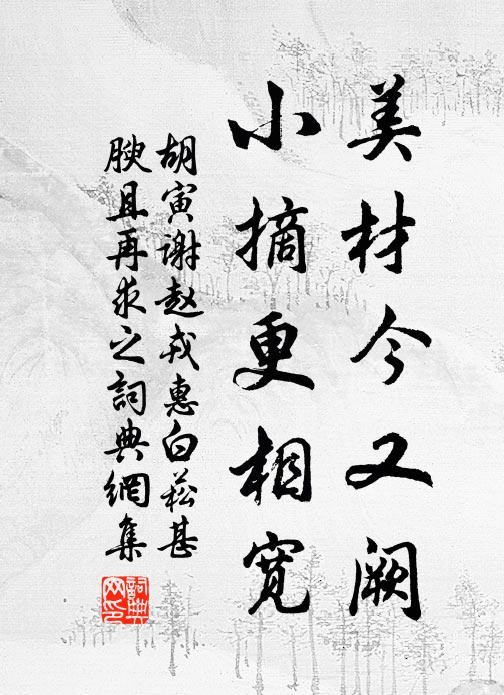 美材今又阙
小摘更相宽
胡寅谢赵戎惠白菘甚
腴且再求之詞典網集
詞典